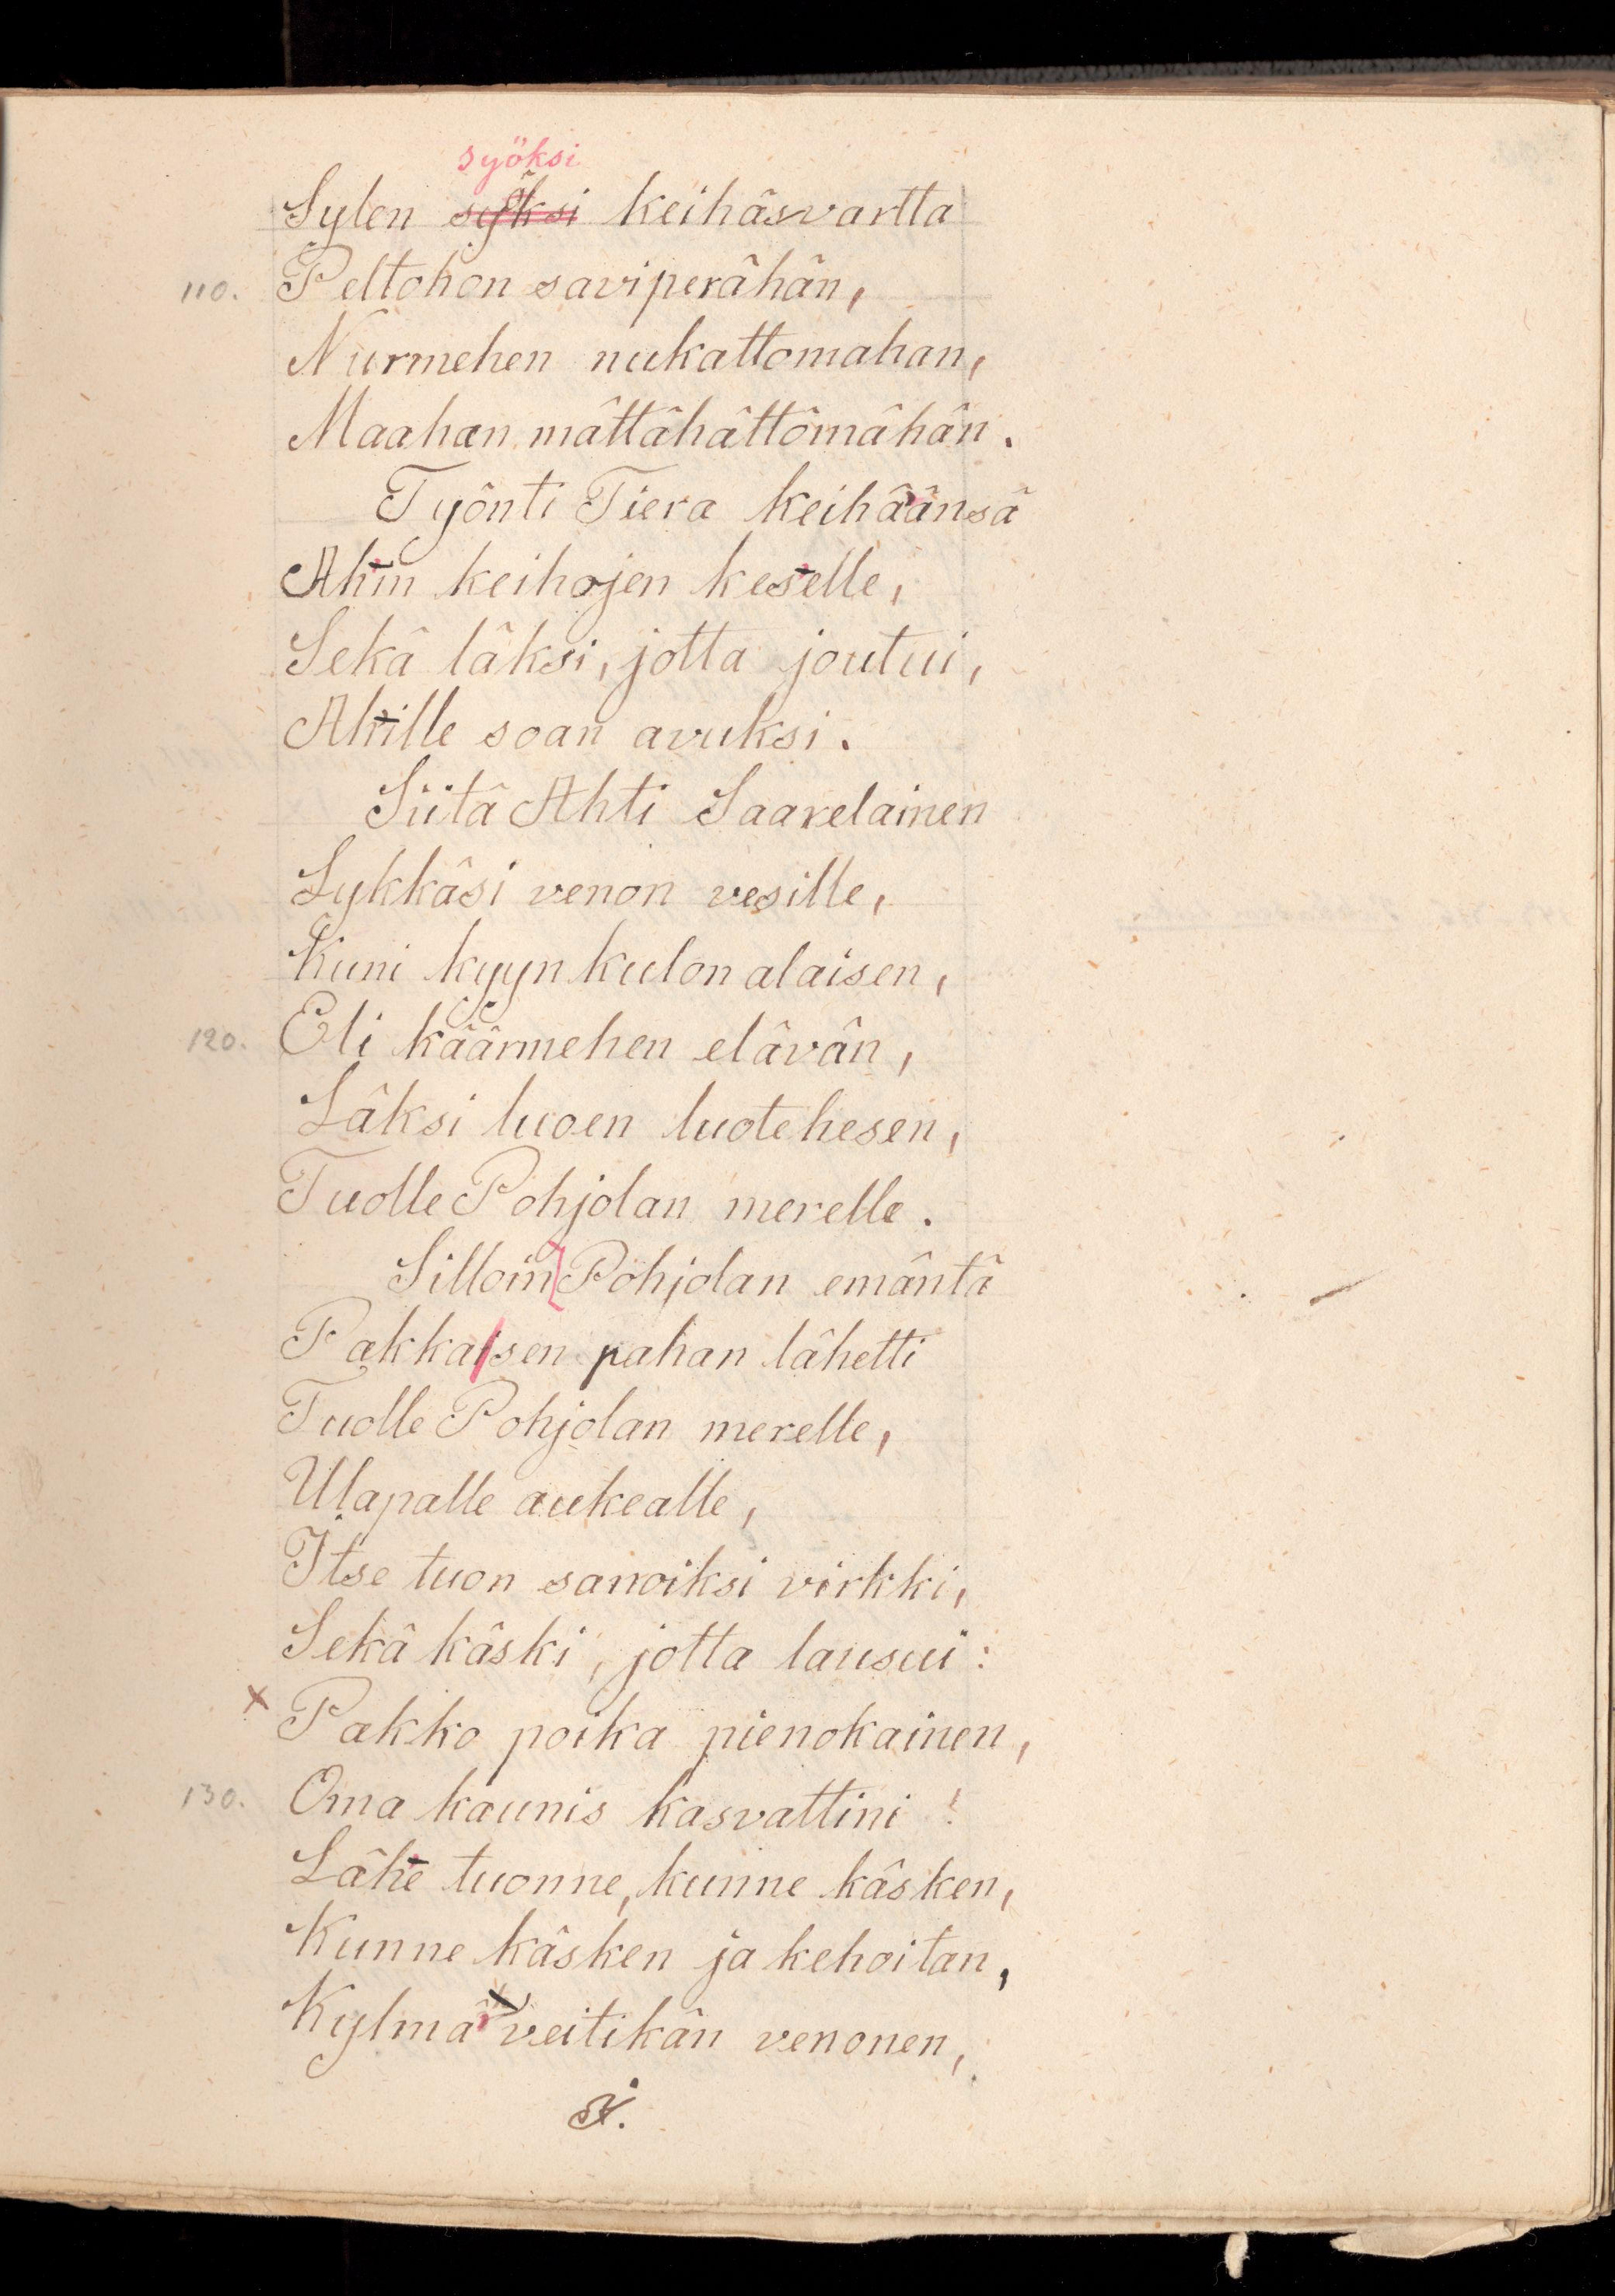 syöksi
Sylen syöksi keihäsvartta
110. Peltohon saviperähän,
Nurmehen nukattomahan,
Maahan mättähättömähän.
Työnti Tiera keihäänsä
Ahin keihojen keselle,
Sekä läksi, jotta joutui,
Ahille soan avuksi.
Siitä Ahti Saarelainen
Lykkäsi venon vesille,
Kuni kyyn kulon alaisen,
120. Eli käärmehen elävän,
Läksi luoen luotehesen,
Tuolle Pohjolan merelle.
Silloin Pohjolan emäntä
Pakkaisen pahan lähetti
Tuolle Pohjolan merelle,
Ulapalle aukealle,
Itse tuon sanoiksi virkki,
Sekä käski, jotta lausui:
x Pakko poika pienokainen,
130. Oma kaunis kasvattini!
Lähe tuonne, kunne käsken,
Kunne käsken ja kehoitan,
Kylmä veitikän venonen,